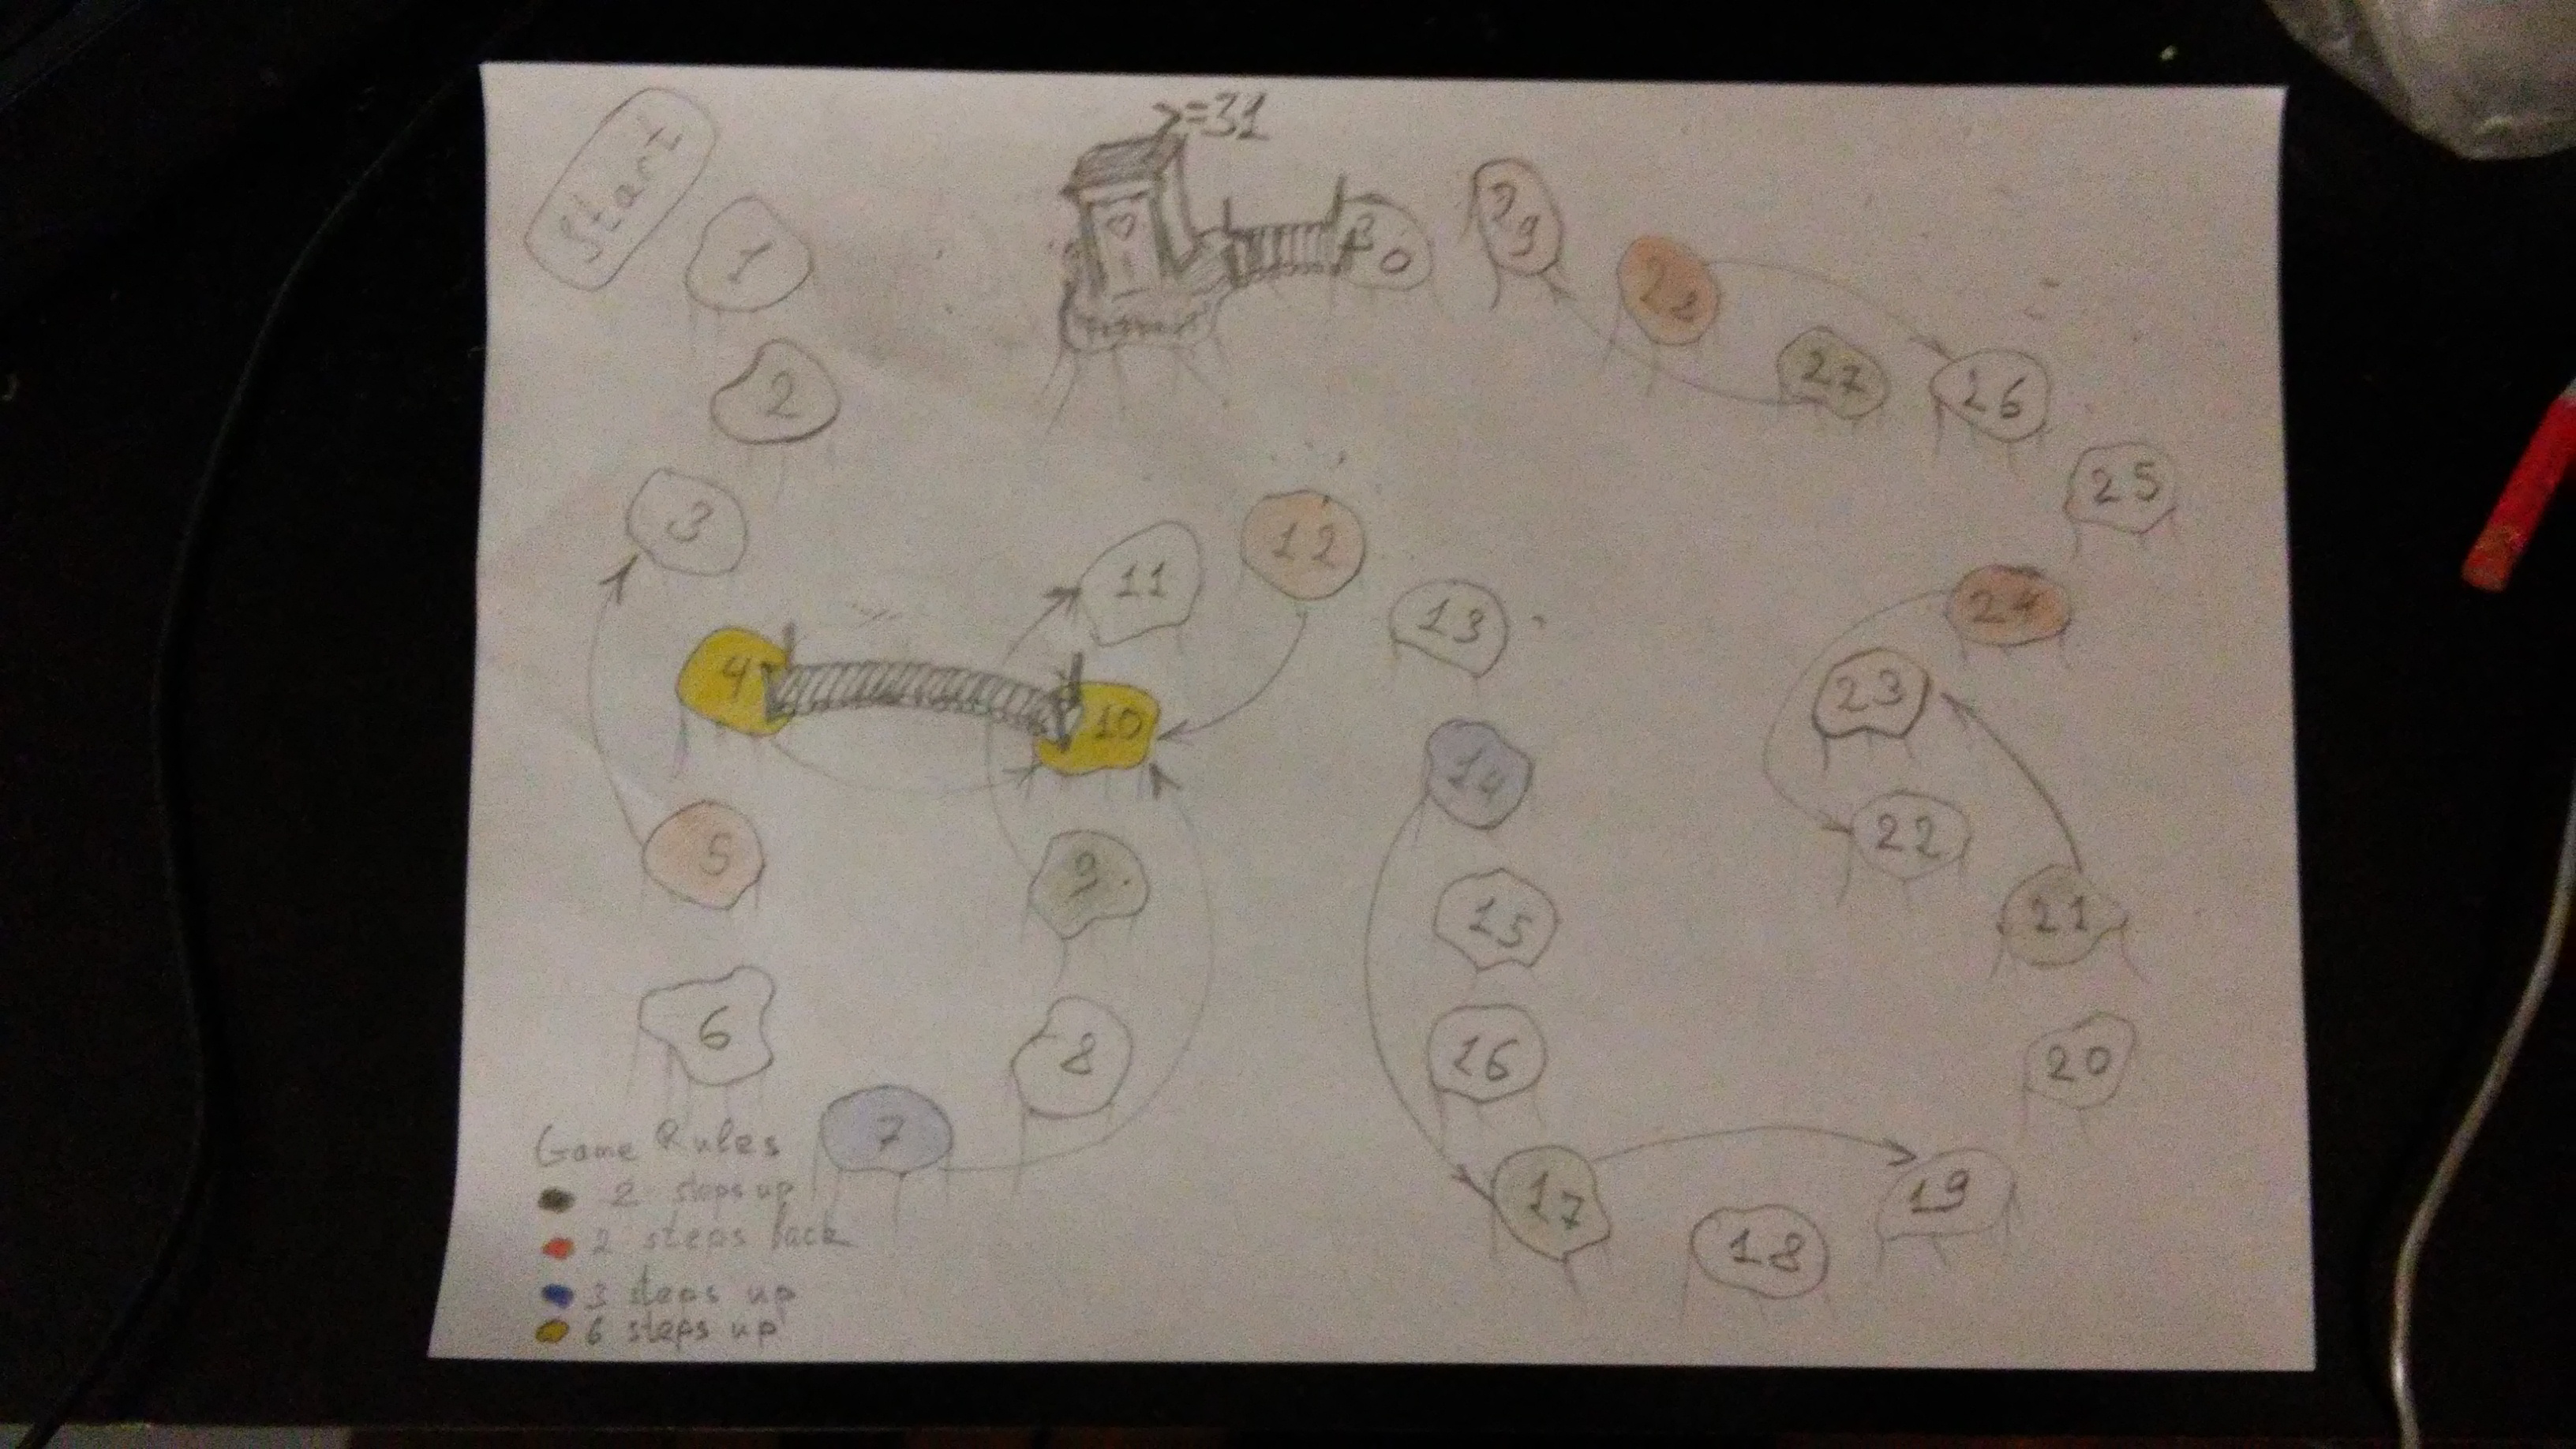 Start
1
2
3
4
5
6
7
8
9
10
11
12
13
14
15
16
17
18
19
20
21
22
23
24
25
16
27
29
30
>=31
Home
Game Rules
2 steps up
2 steps back
3 steps up
6 steps up